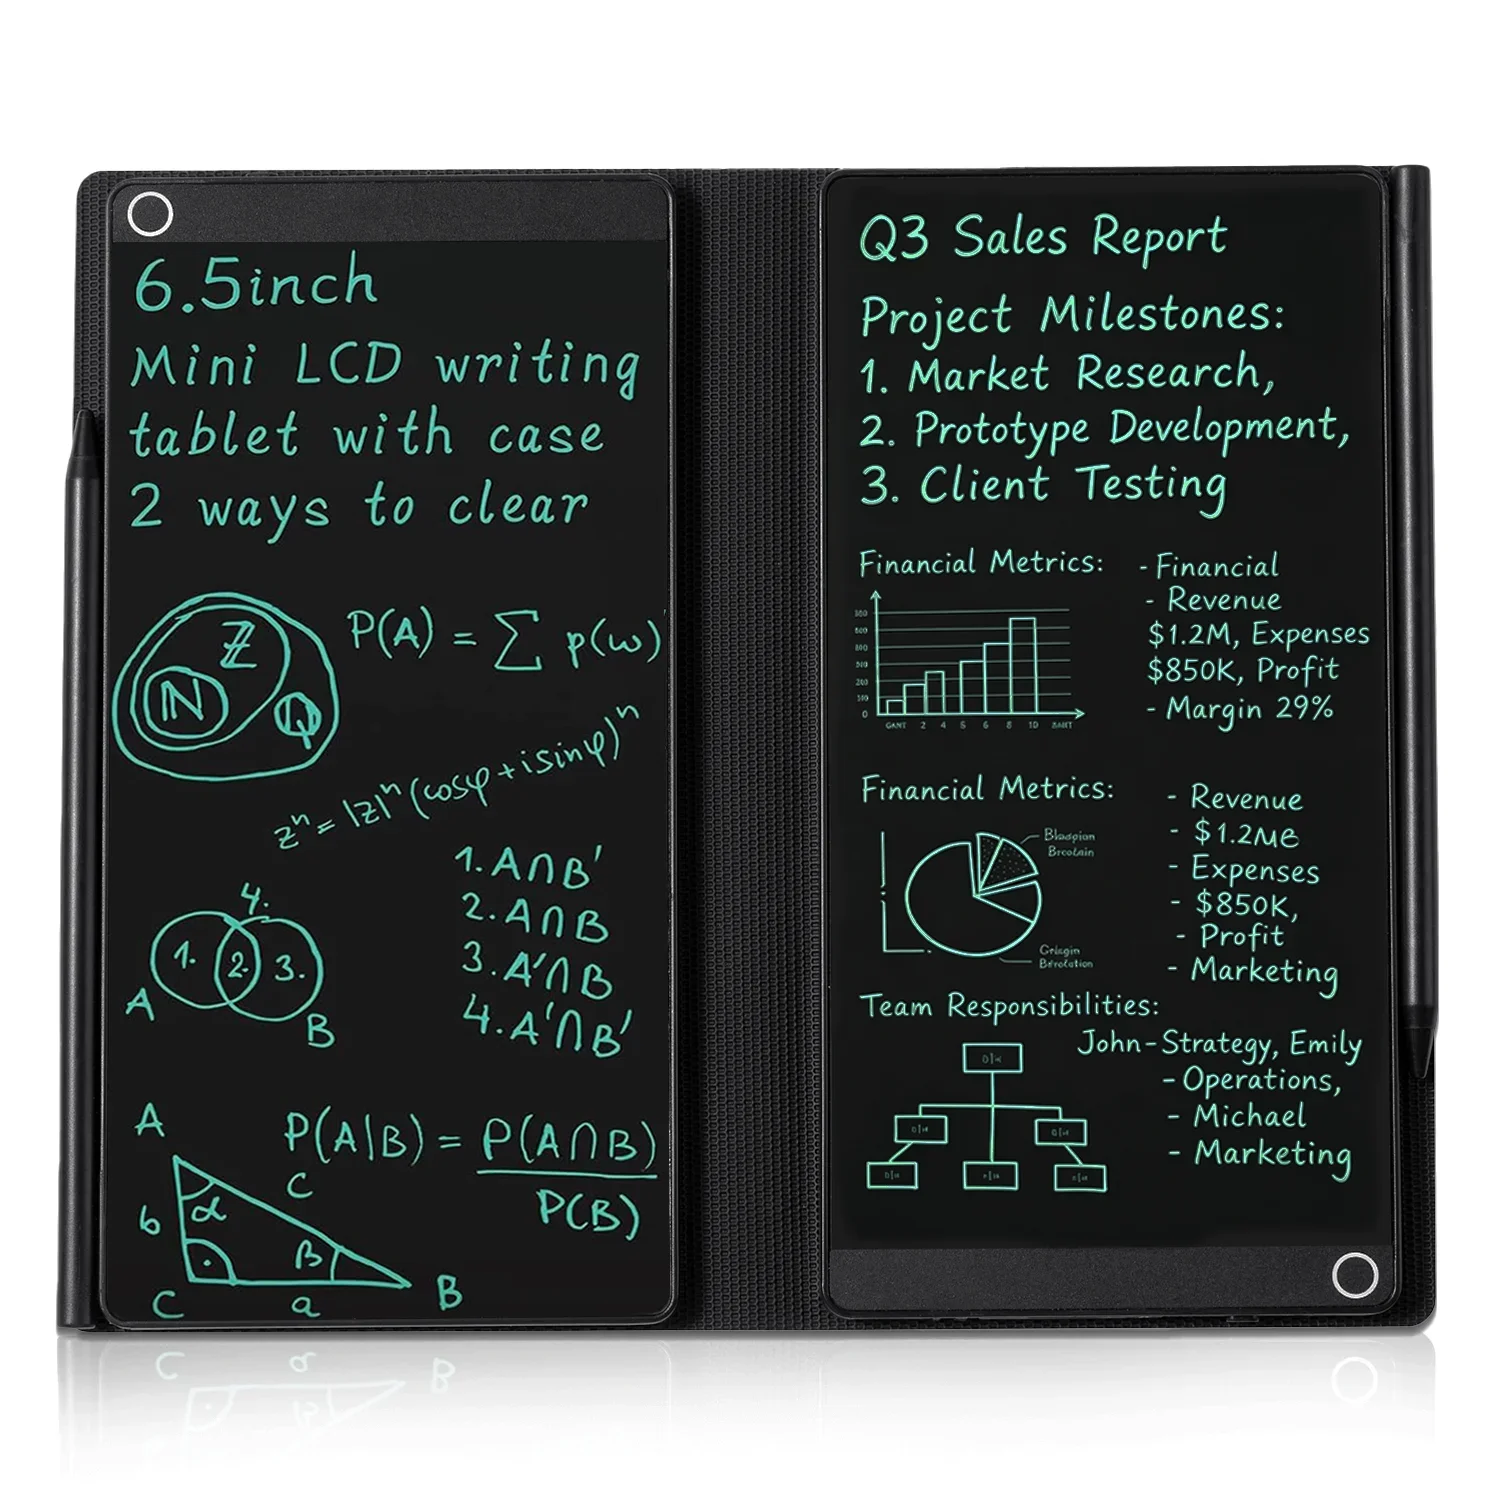 6.5inch
Mini LCD writing
tablet with case
2 ways to clear
ℤ
ℕ
ℚ
P(A) = ∑ p(ω)
zⁿ = |z|ⁿ (cosφ + i sinφ)ⁿ
4.
1. 2. 3.
A
B
1. A∩B'
2. A∩B
3. A'∩B
4. A'∩B'
P(A|B) = P(A∩B)
P(B)
A
c
b
α
β
C
a
B
Q3 Sales Report
Project Milestones:
1. Market Research,
2. Prototype Development,
3. Client Testing
Financial Metrics:
0
2 4 6 8 10
- Financial
- Revenue
$1.2M, Expenses
$850K, Profit
- Margin 29%
Financial Metrics:
- Revenue
- $1.2MB
- Expenses
- $850K,
- Profit
- Marketing
Team Responsibilities:
John-Strategy, Emily
- Operations,
- Michael
- Marketing